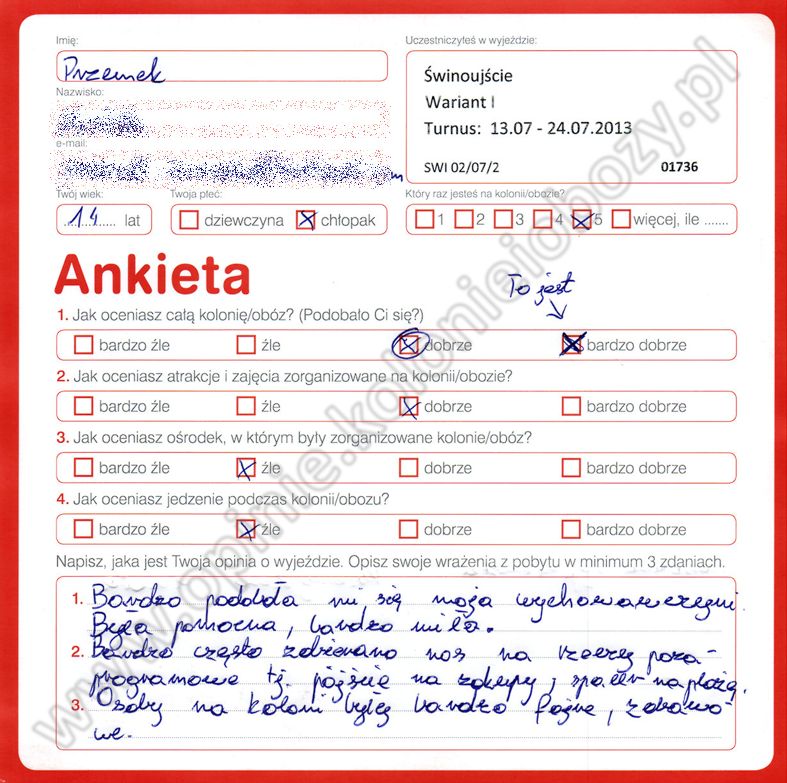 Imię:
Przemek
Uczestniczyłeś w wyjeździe:
Świnoujście
Wariant I
Turnus: 13.07 - 24.07.2013
SWI 02/07/2 01736
Nazwisko:
e-mail:
Twój wiek:
14 lat
Twoja płeć:
dziewczyna chłopak
Który raz jesteś na kolonii/obozie?
1 2 3 4 5 więcej, ile .......
Ankieta
To jest
1. Jak oceniasz całą kolonię/obóz? (Podobało Ci się?)
bardzo źle źle dobrze bardzo dobrze
2. Jak oceniasz atrakcje i zajęcia zorganizowane na kolonii/obozie?
bardzo źle źle dobrze bardzo dobrze
3. Jak oceniasz ośrodek, w którym były zorganizowane kolonie/obóz?
bardzo źle źle dobrze bardzo dobrze
4. Jak oceniasz jedzenie podczas kolonii/obozu?
bardzo źle źle dobrze bardzo dobrze
Napisz, jaka jest Twoja opinia o wyjeździe. Opisz swoje wrażenia z pobytu w minimum 3 zdaniach.
1. Bardzo podobała mi się moja wychowawczyni.
Była pomocna, bardzo miła.
2. Bardzo często zabierano nas na rzeczy poza-
programowe tj. pójście na zakupy, spacer na plażę.
3. Osoby na koloni były bardzo fajne,
we.
www.opinie.kolonieiobozy.pl